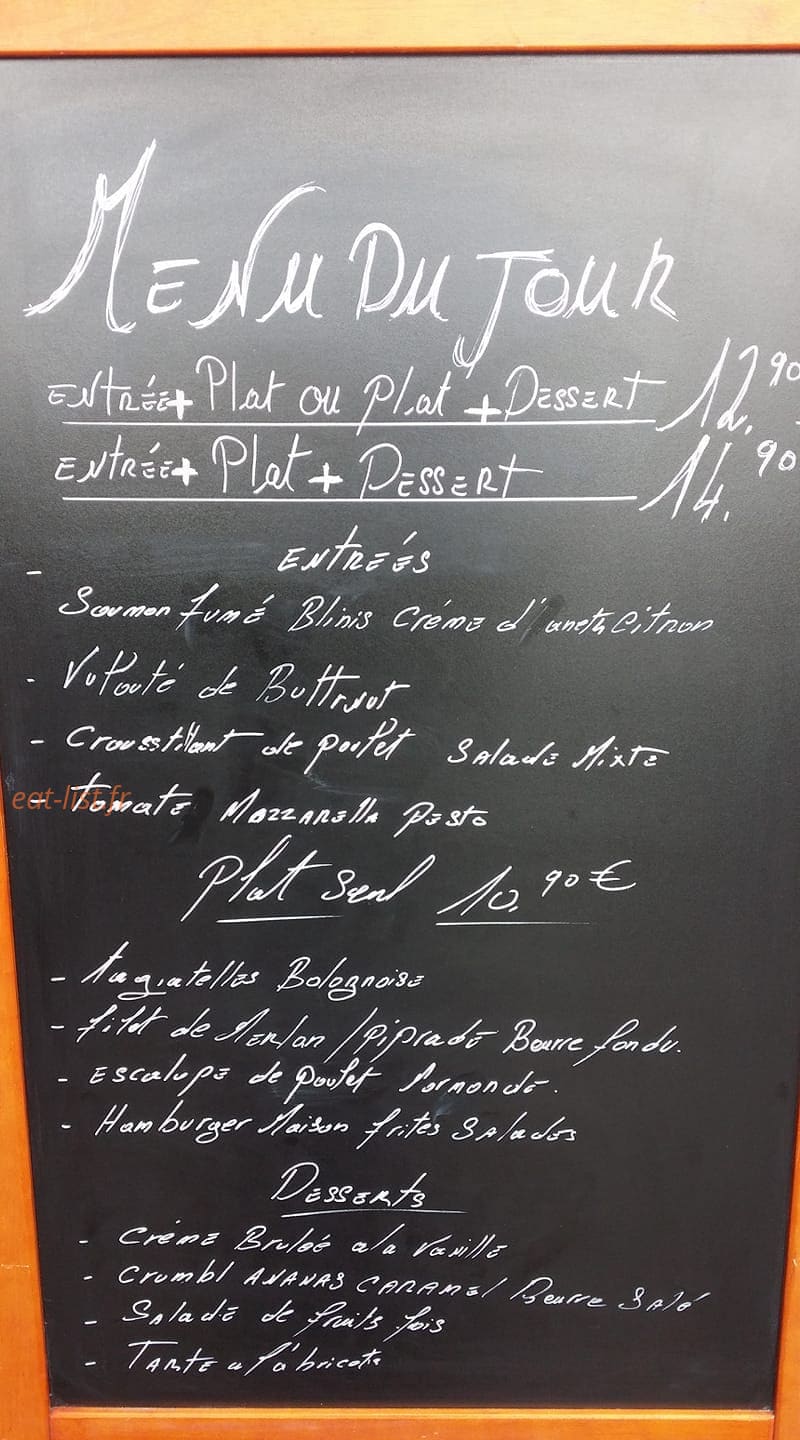 MENU DU JOUR
ENTRÉE + Plat ou plat + DESSERT 12.90
ENTRÉE + Plat + DESSERT 14.90
ENTREÉS
- Saumon fumé Blinis Créme d'aneth Citron
- Velouté de Butternut
- Croustillant de poulet Salade Mixte
- Tomate MOZZARELLA PESTO
eat-list.fr
Plat Seul 10.90€
- Tagiatelles Bolognaise
- filet de Merlan / Piprade Beurre fondu.
- Escalope de poulet Normonde.
- Hamburger Maison frites Salades
Desserts
- Créme Brulée a la Vanille
- Crumbl ANANAS CARAMEl Beurre Salé
- Salade de fruits fois
- TARTE a l'abricots